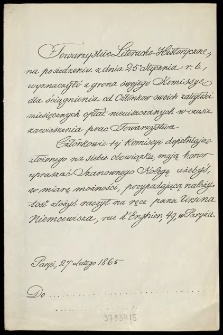 Towarzystwo Literacko-Historyczne,
na posiedzeniu z dnia 25 Stycznia r. b.,
wyznaczyło z grona swojego Komissyę
dla ściągnienia od Członków swoich zaległości
miesięcznych opłat nieuiszczonych w czasie
zawieszenia prac Towarzystwa.
Członkowie tej Komissyi dopełniając
włożonego na siebie obowiązku, mają honor
upraszać Szanownego Kolegę, ażebyś,
w miarę możności, przypadającą należy-
tość złożyć raczył na ręce pana Ursina
Niemcewicza, rue d'Enghien, 49, w Paryżu.
Paryż, 27 Lutego 1865
Do